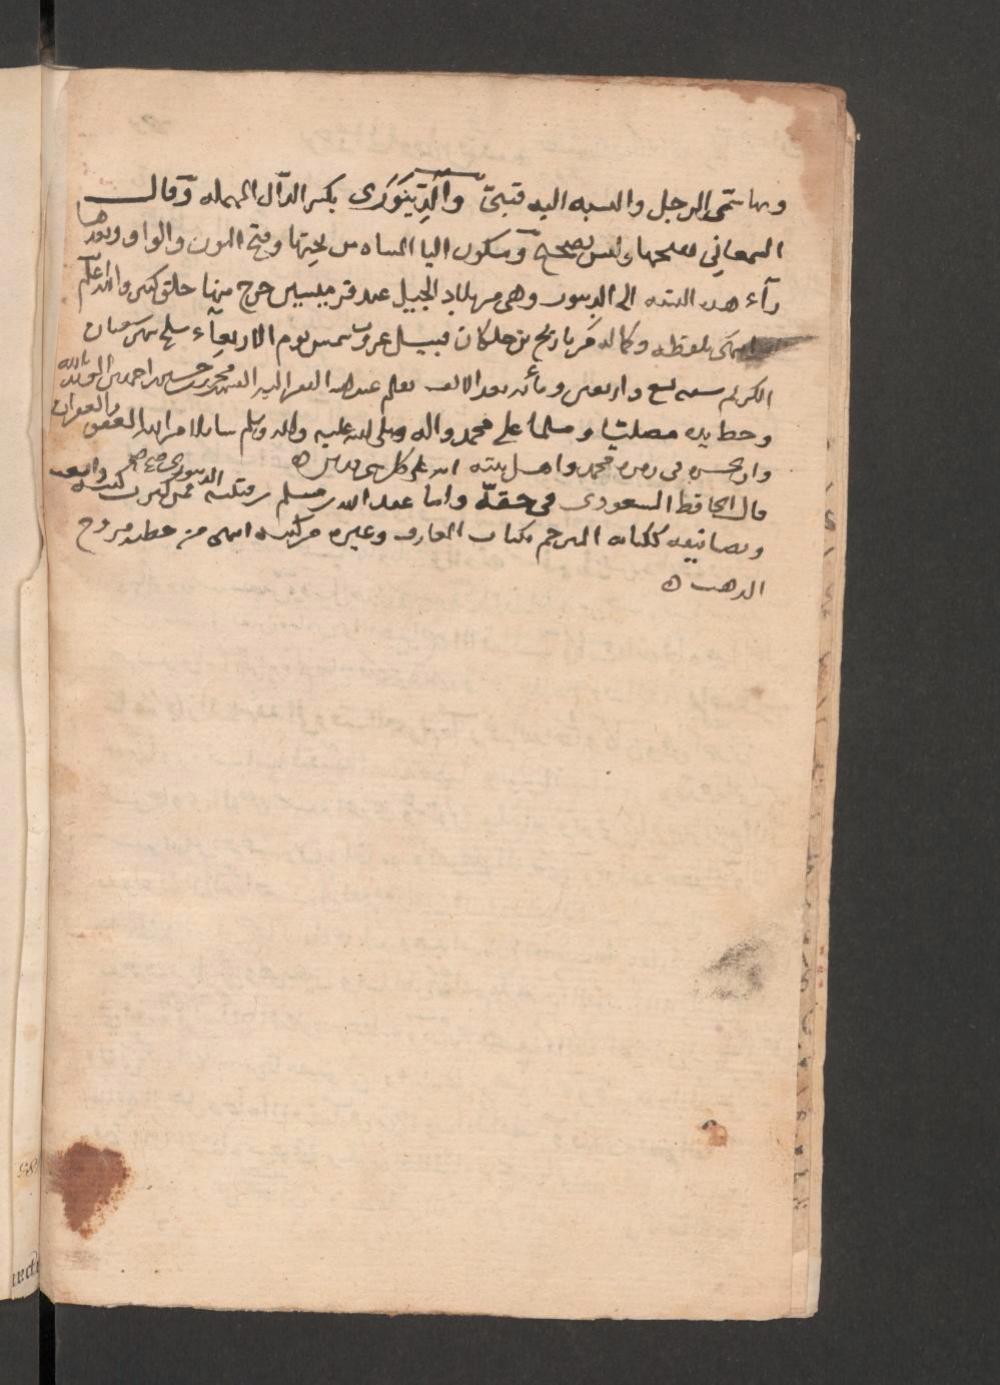 وبها سمى الرجل والنسبه اليه قتبىّ والدِّينَوَرى بكسر الدال المهمله وقال
السمعانى بفتحها وليس بصحيح وسكون اليا المثناه من تحتها وفتح النون والواو وبعدها
رآء هذه النسبه الى الدينور وهى من بلاد الجبيل عند قرميسين خرج منها خلق كثير والله اعلم
انتهى بلفظه وكماله من تاريخ بن خلكان قبيل غروب شمس يوم الاربعآء سلخ شهر شعبان
الكريم سنه سبع واربعين ومأئه بعد الالف بقلم عبدالله الفقير اليه محمد بن حسين بن احمد
وخط يده مصليا ومسلما على محمد واله وصلى الله عليه واله وسلم سايلا من الله العفو والغفران
وان يحشره فى زمره محمد واهل بيته انه على كل شى قدير ه
قال الحافظ السعودى فى حقه واما عبد الله بن مسلم بن قتيبه الدينورى فممن كثرت كتبه
وتصانيفه ككتابه المترجم بكتاب المعارف وغيره من كتبه انتهى من خطه مروج
الذهب ه